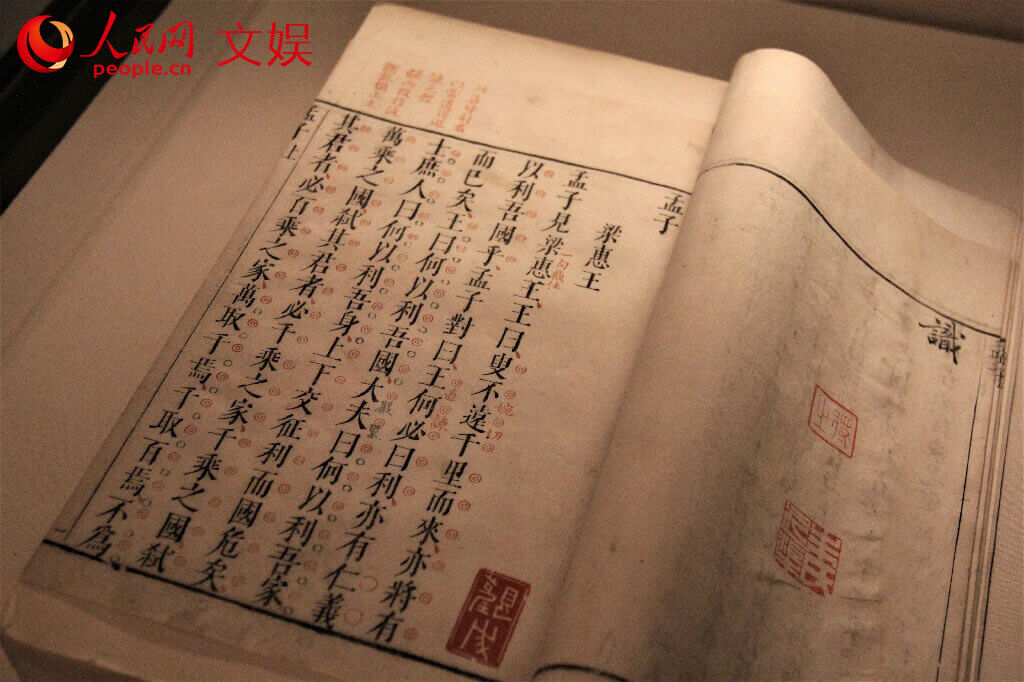 人民网 文娱
people.cn
孟子
識
孟子
梁惠王
孟子見梁惠王王曰叟不遠千里而來亦將有
以利吾國乎孟子對曰王何必曰利亦有仁義
而已矣王曰何以利吾國大夫曰何以利吾家
士庶人曰何以利吾身上下交征利而國危矣
萬乘之國弒其君者必千乘之家千乘之國弒
其君者必百乘之家萬取千焉千取百焉不爲
孟子上
一
婉切